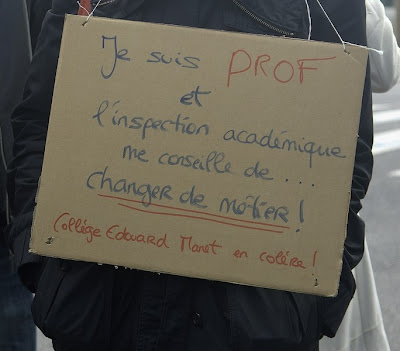 Je suis PROF
et
l'inspection académique
me conseille de ...
changer de métier !
Collège Edouard Manet en colère !